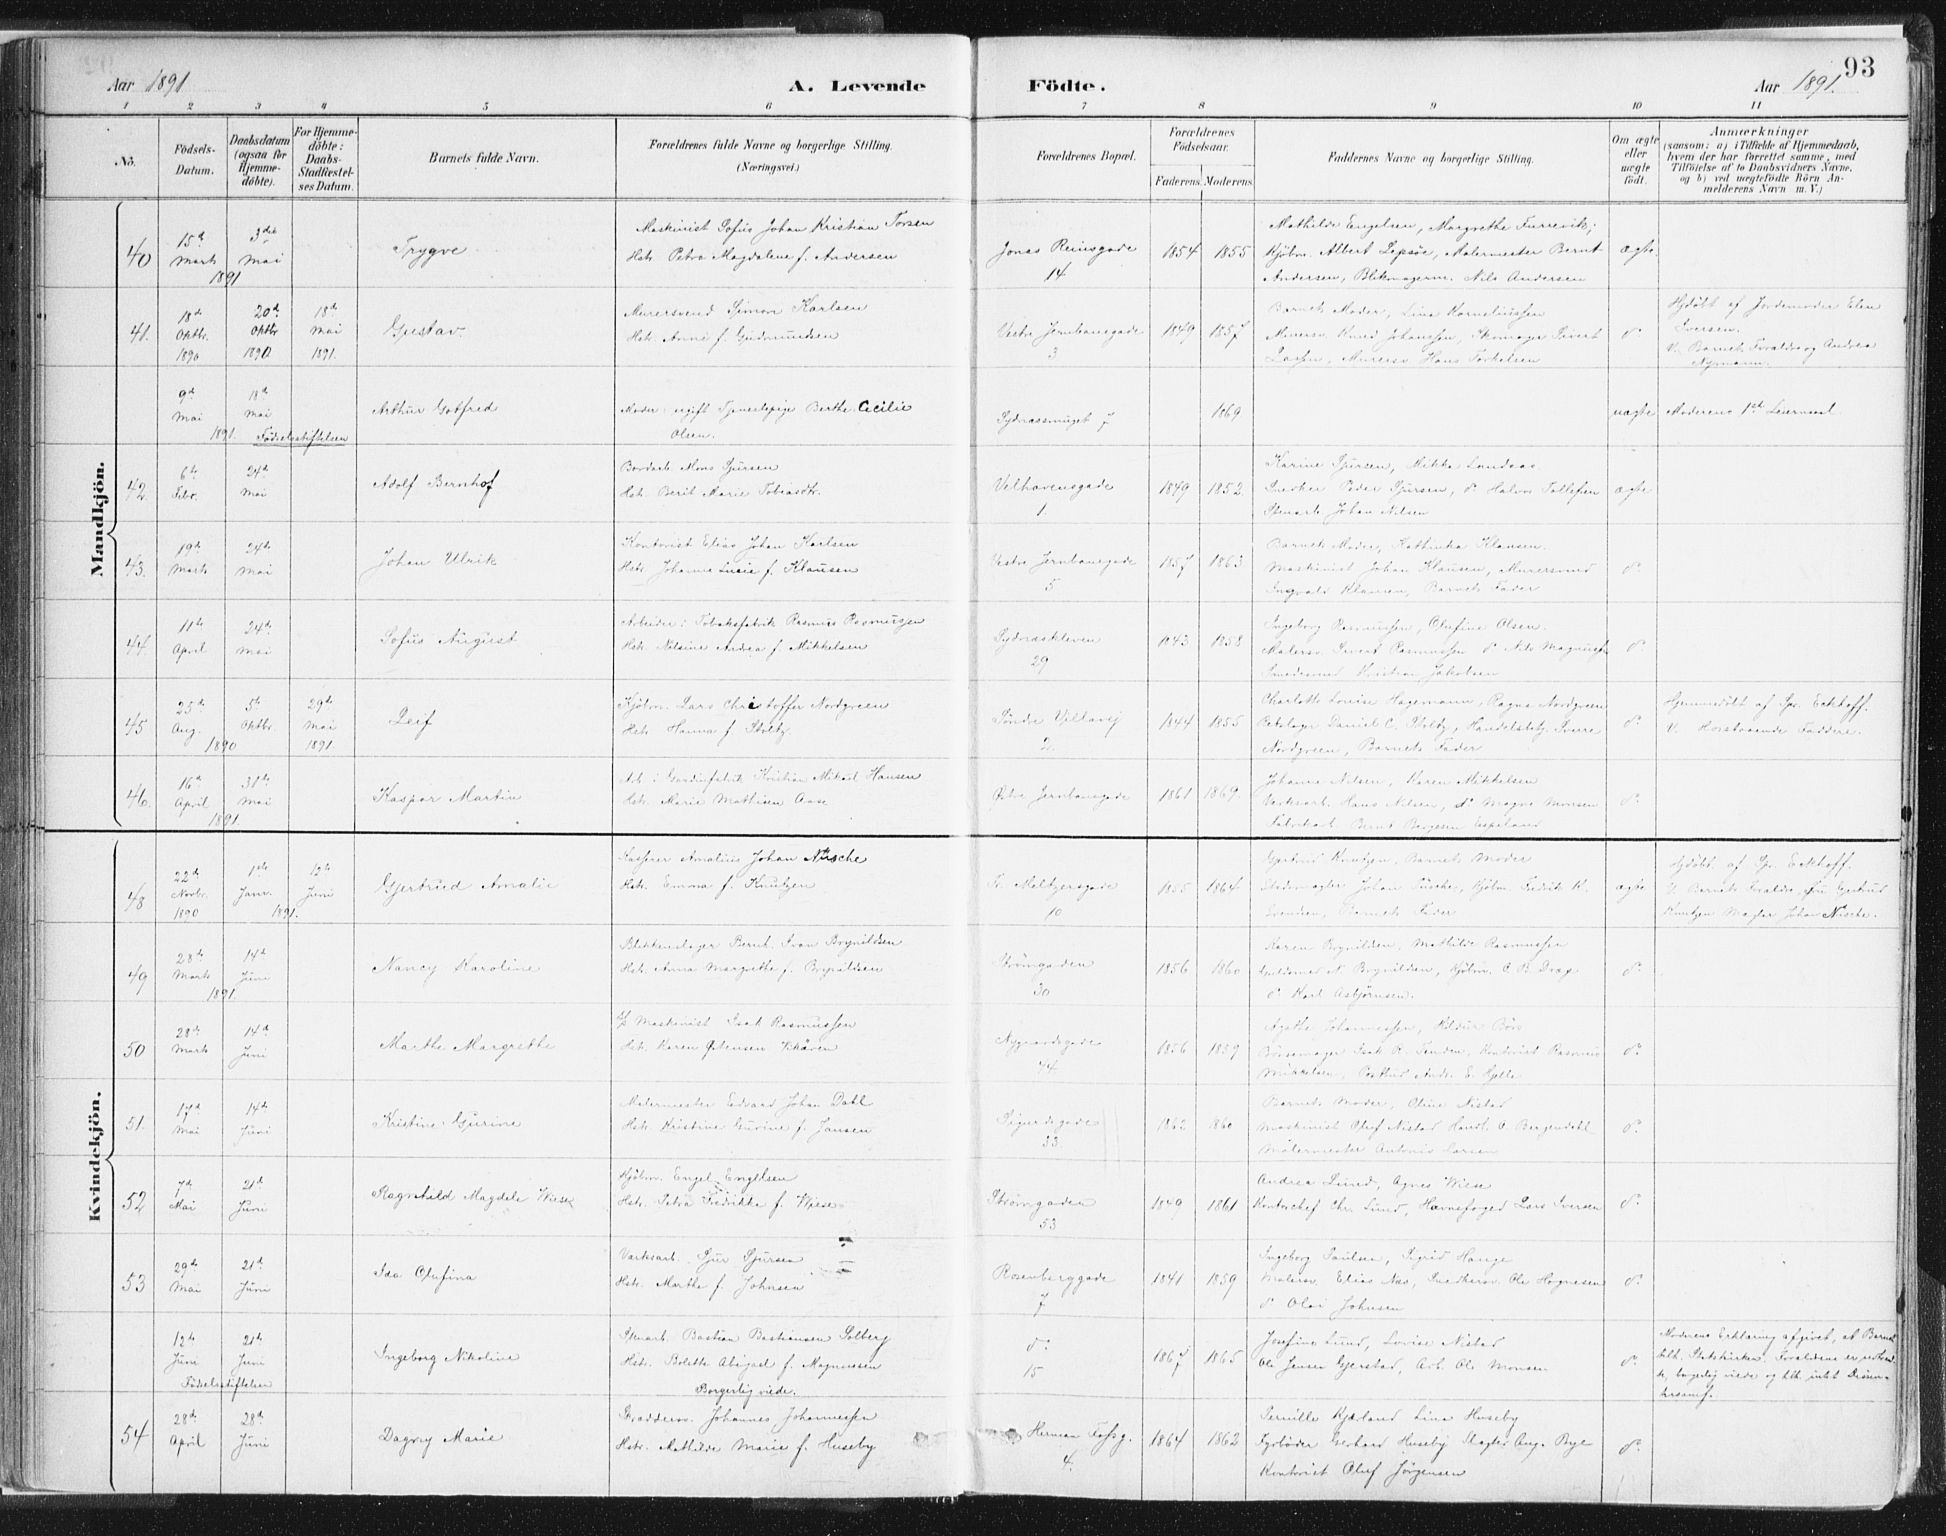 93
Aar 1891 A. Levende Födte. Aar 1891.
1 2 3 4 5 6 7 8 9 10 11
No. Födsels-Datum. Daabsdatum (ogsaa for Hjemme-döbte). For Hjemme-döbte: Daabs-Stadfæstel-ses Datum. Barnets fulde Navn. Forældrenes fulde Navne og borgerlige Stilling. (Næringsvei.) Forældrenes Bopæl. Forældrenes Födselsaar. Faderens. Moderens. Faddernes Navne og borgerlige Stilling. Om ægte eller uægte födt. Anmærkninger (saasom: a) i Tilfælde af Hjemmedaab, hvem der har forrettet samme, med Tilföielse af to Daabsvidners Navne, og b) ved uægtefödte Börn An-melderens Navn m. V.)
Mandkjön.
40 15de Marts 1891 3die Mai Trygve
Maskinist Sofus Johan Kristian Torsen
Hstr. Petra Magdalene f. Andersen
Jonas Reinsgade 14 1854 1855
Mathilde Engelsen, Margrethe Furrevik;
Kjöbm. Albert Lepsöe, Malermester Bernt
Andersen, Blikmagerm. Nils Andersen
ægte
41. 18de Oktbr. 1890 20de Oktbr. 1890. 18de Mai 1891. Gustav
Murersvend Simon Karlsen
Hstr. Anne f. Gudmundsen
Vestre Jernbanegade 3 1849 1857
Barnets Moder, Lina Korneliussen
Murersv. Knud Johanssen, Skomager Sivert
Lassen, Murersv. Hans Torkelsen
do.
Hjdöbt af Jordemoder Elen
Iversen.
V. Barnets Forældre og Andrea
Nymann.
9de Mai 1891. 18de Mai Födselsstiftelsen Arthur Gotfred
Moder: ugift Tjenestepige Berthe Cecilie
Olsen.
Sydnæssmuget 7 1869.
uægte Moderens 1ste Leiermaal
42 6te Febr. 24de Mai Adolf Bernhof
Bordarb. Mons Sjursen
Hstr. Berit Marie Tobiasdtr.
Velhavensgade 1. 1849 1852.
Karine Sjursen, Mikka Landaas.
Snedker Peder Sjursen, do Halvor Tollefsen
Stenarb. Johan Nilsen
ægte
43. 19de Marts 24de Mai Johan Ulrik
Kontorist Elias Johan Karlsen
Hstr. Johanne Lucie f. Klausen
Vestre Jernbanegade 5 1857 1863
Barnets Moder, Kathinka Klausen.
Maskinist Johan Klausen, Murersvend
Ingvald Klausen, Barnets Fader
do.
44 11te April 24de Mai Sofus August
Arbeider i Tobaksfabrik Rasmus Rasmussen
Hstr. Nilsine Andrea f. Mikkelsen
Sydnæskleven 29 1843 1858
Ingeborg Rasmussen, Olufine Olsen.
Malersv. Sivert Rasmussen do Nils Magnussen
Smedesvend Kristian Jakobsen
do.
45 25de Aug. 1890 5te Oktbr. 29de Mai 1891. Leif
Kjöbm. Lars Christoffer Nordgreen
Hstr. Hanna f. Stoltz
Söndre Villavej 2. 1844 1855
Charlotte Louise Hagemann, Ragna Nordgreen
Daniel C. Stoltz, Handelsbetj. Sverre
Nordgreen, Barnets Fader
do.
Hjemmedöbt af Spr. Eckhoff.
V. Horstaaende Faddere.
46. 16de April 1891. 31te Mai Kaspar Martin
Arb. i Gardinfabrik Kristian Mikael Hansen
Hstr. Marie Mathisen Aase
Østre Jernbanegade 1861 1869.
Johanne Nilsen, Karen Mikkelsen
Værksarb. Hans Nilsen, do Magne Monsen
Fabrikarb. Bernt Børgesen Espeland
do.
Kvindekjön.
48 22de Novbr. 1890 1ste Janr. 1891. 12te Juni Gjertrud Amalie
Kasserer Amalius Johan Nitsche
Hstr. Emma f. Knutzen
Fr. Meltzersgade 10 1855 1864
Gjertrud Knutzen, Barnets Moder
Johan Kjöbm. Fredrik K.
Svendsen, Barnets Fader
ægte
Hjdöbt af Spr. Eckhoff.
V. Barnets Forældre, Fru Gjertrud
Knutzen Mægler Johan Nitsche.
49 28de Marts 1891. 14de Juni Nancy Karoline
Blikkenslager Bernt Ivan Brynildsen
Hstr. Anna Margrethe f. Brynildsen
Strömgaden 30 1856 1860
Karen Brynildsen, Mathilde Rasmussen
Guldsmed N. Brynildsen, Kjöbm. C. B. Drage
do Karl Asbjörnsen.
do.
50 28de Marts 14de Juni Marthe Margrethe
Maskinist Isak Rasmussen
Hstr. Karen Østensen
Nygaardsgade 44 1856 1859
Agathe Johannessen, Hildur Börs
Börsemager Isak R. Kontorist Rasmus
Mikkelsen, Postbud Andr. E. Hjelle
do.
51. 17de Mai 14de Juni Kristine Gurine
Malermester Edvard Johan Dahl
Hstr. Kristine Gurine f. Jansen
Sigurdsgade 33 1862 1860
Barnets Moder, Oline Nistad
Maskinist Oluf Nistad Handl. O. Bergendahl
Malermester Antonis Larsen
do.
52 7de Mai 21de Juni Ragnhild Magdele Wiese
Kjöbm. Engel Engelsen
Hstr. Petra Fredrikke f. Wiese
Strömgaden 53 1849 1861
Andrea Lund, Agnes Wiese
Kontorchef Chr. Lund, Havnefoged Lars Iversen
do.
53 29de Mai 21de Juni Ida Olufina
Værksarb. Sjur Sjursen
Hstr. Marthe f. Johnsen
Rosenberggade 7 1841 1859
Ingeborg Paulsen, Sigrid Hauge
Malersv. Elias Næs, Snedkersv. Ole Hognesen
do Olai Johnsen
do.
12te Juni 21de Juni Födselsstiftelsen Ingeborg Nikoline
Stenarb. Bastian Bastiansen Solberg
Hstr. Bolette Abigael f. Magnussen
Borgerlig viede.
do. 15 1867 1865
Josefine Lund, Lovise Nistad
Ole Jensen Gjerstad, Arb. Ole Monsen
do.
Moderens Erklæring afgivet, at Barnet
tilh. Statskirken. Forældrene er
borgerlig viede og tilh. intet Dissen-
tersamf.
54 28de April 28de Juni Dagny Marie
Skræddersv. Johannes Johannessen
Hstr. Mathilde Marie f. Huseby
Herman Fossg. 4. 1864 1862
Pernille Kjærland Lina Huseby
Fyrböder Gerhard Huseby Slagter Aug. Bye
Kontorist Oluf Jörgensen
do.